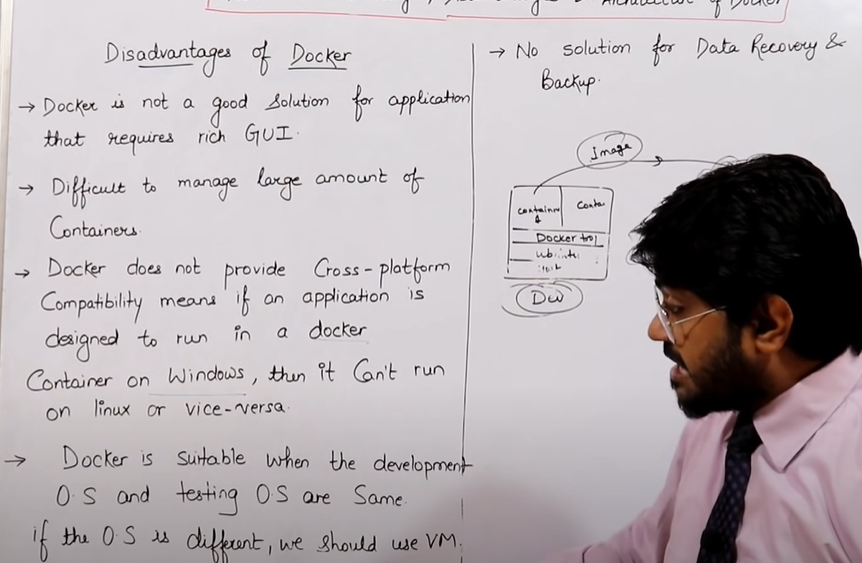 Architecture of Docker
Disadvantages of Docker
→ Docker is not a good solution for application
that requires rich GUI.
→ Difficult to manage large amount of
Containers.
→ Docker does not provide Cross-platform
Compatibility means if an application is
designed to run in a docker
Container on Windows, then it Can't run
on linux or vice-versa.
→ Docker is suitable when the development
O.S and testing O.S are Same.
if the O.S is different, we should use VM.
→ No solution for Data Recovery &
Backup.
Image
Docker
Dev